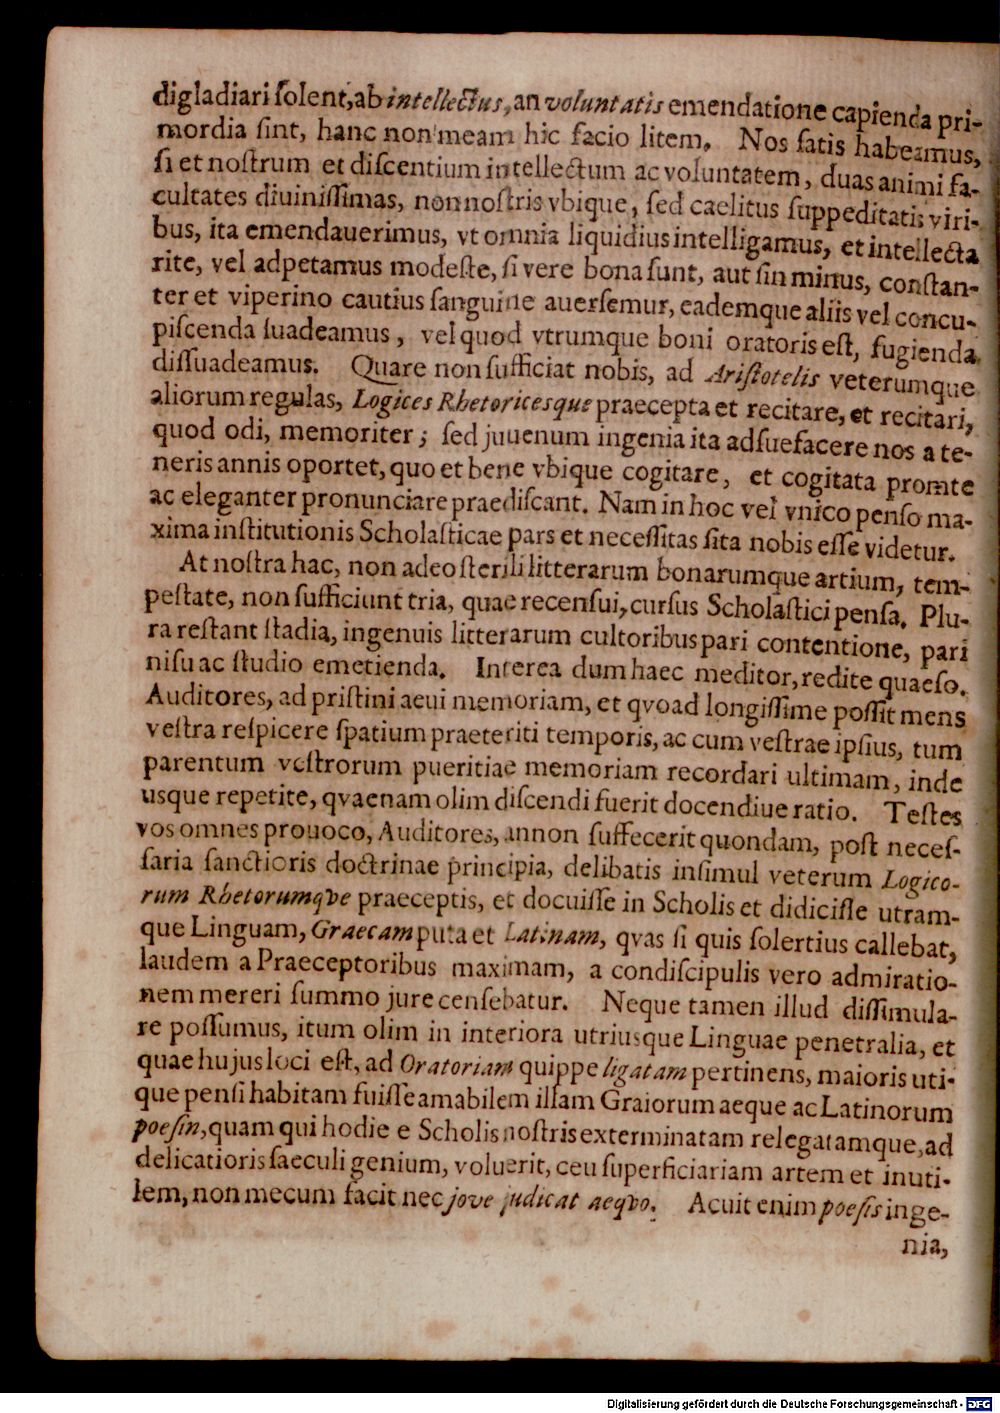 digladiari ſolent, ab intellectus, an voluntatis emendatione capienda pri-
mordia ſint, hanc non meam hic facio litem. Nos ſatis habeamus,
ſi et noſtrum et diſcentium intellectum ac voluntatem, duas animi fa-
cultates diuiniſſimas, non noſtris vbique, ſed caelitus ſuppeditatis viri-
bus, ita emendauerimus, vt omnia liquidius intelligamus, et intellecta
rite, vel adpetamus modeſte, ſi vere bona ſunt, aut ſin minus, conſtan-
ter et viperino cautius ſanguine auerſemur, eademque aliis vel concu-
piſcenda ſuadeamus, vel quod vtrumque boni oratoris eſt, fugienda
diſſuadeamus. Quare non ſufficiat nobis, ad Ariſtotelis veterumque
aliorum regulas, Logices Rhetoricesque praecepta et recitare, et recitari,
quod odi, memoriter; ſed juuenum ingenia ita adſuefacere nos a te-
neris annis oportet, quo et bene vbique cogitare, et cogitata promte
ac eleganter pronunciare praediſcant. Nam in hoc vel vnico penſo ma-
xima inſtitutionis Scholaſticae pars et neceſſitas ſita nobis eſſe videtur.
At noſtra hac, non adeo ſterili litterarum bonarumque artium, tem-
peſtate, non ſufficiunt tria, quae recenſui, curſus Scholaſtici penſa. Plu-
ra reſtant ſtadia, ingenuis litterarum cultoribus pari contentione, pari
niſu ac ſtudio emetienda. Interea dum haec meditor, redite quaeſo.
Auditores, ad priſtini aeui memoriam, et qvoad longiſſime poſſit mens
veſtra reſpicere ſpatium praeteriti temporis, ac cum veſtrae ipſius, tum
parentum veſtrorum pueritiae memoriam recordari ultimam, inde
usque repetite, qvaenam olim diſcendi fuerit docendiue ratio. Teſtes
vos omnes prouoco, Auditores, annon ſuffecerit quondam, poſt neceſ-
ſaria ſanctioris doctrinae principia, delibatis inſimul veterum Logico-
rum Rhetorumqve praeceptis, et docuiſſe in Scholis et didiciſſe utram-
que Linguam, Graecam puta et Latinam, qvas ſi quis ſolertius callebat,
laudem a Praeceptoribus maximam, a condiſcipulis vero admiratio-
nem mereri ſummo jure cenſebatur. Neque tamen illud diſſimula-
re poſſumus, itum olim in interiora utriusque Linguae penetralia, et
quae hujus loci eſt, ad Oratoriam quippe ligatam pertinens, maioris uti-
que penſi habitam fuiſſe amabilem illam Graiorum aeque ac Latinorum
poeſin, quam qui hodie e Scholis noſtris exterminatam relegatamque, ad
delicatioris ſaeculi genium, voluerit, ceu ſuperficiariam artem et inuti-
lem, non mecum facit nec jove judicat aeqvo. Acuit enim poeſis inge-
nia,
Digitalisierung gefördert durch die Deutsche Forschungsgemeinschaft - DFG